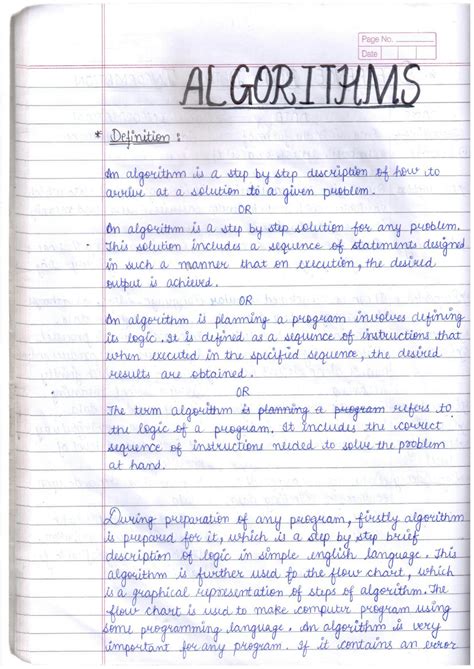 Page No.
Date
ALGORITHMS
* Definition :
An algorithm is a step by step description of how to
arrive at a solution to a given problem.
OR
An algorithm is a step by step solution for any problem.
This solution includes a sequence of statements designed
in such a manner that on execution, the desired
output is achieved.
OR
An algorithm is planning a program involves defining
its logic. It is defined as a sequence of instructions that
when executed in the specified sequence, the desired
results are obtained.
OR
The term algorithm is planning a program refers to
the logic of a program. It includes the correct
sequence of instructions needed to solve the problem
at hand.
During preparation of any program, firstly algorithm
is prepared for it, which is a step by step brief
description of logic in simple english language. This
algorithm is further used for the flow chart, which
is a graphical representation of steps of algorithm. The
flow chart is used to make computer program using
some programming language. An algorithm is very
important for any program. If it contains an error